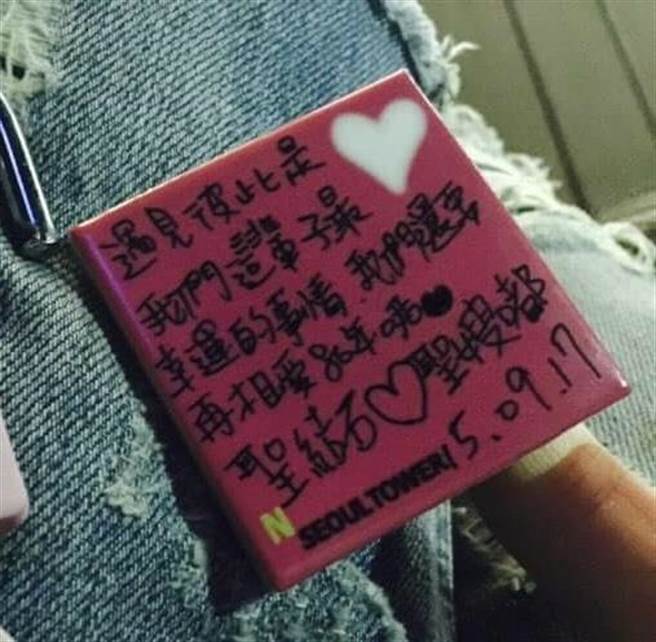 遇見彼此是
我們這輩子最
幸運的事情.我們還要
再相愛80年唷♥
聖結石♡聖嫂都
15.09.17
N SEOULTOWER